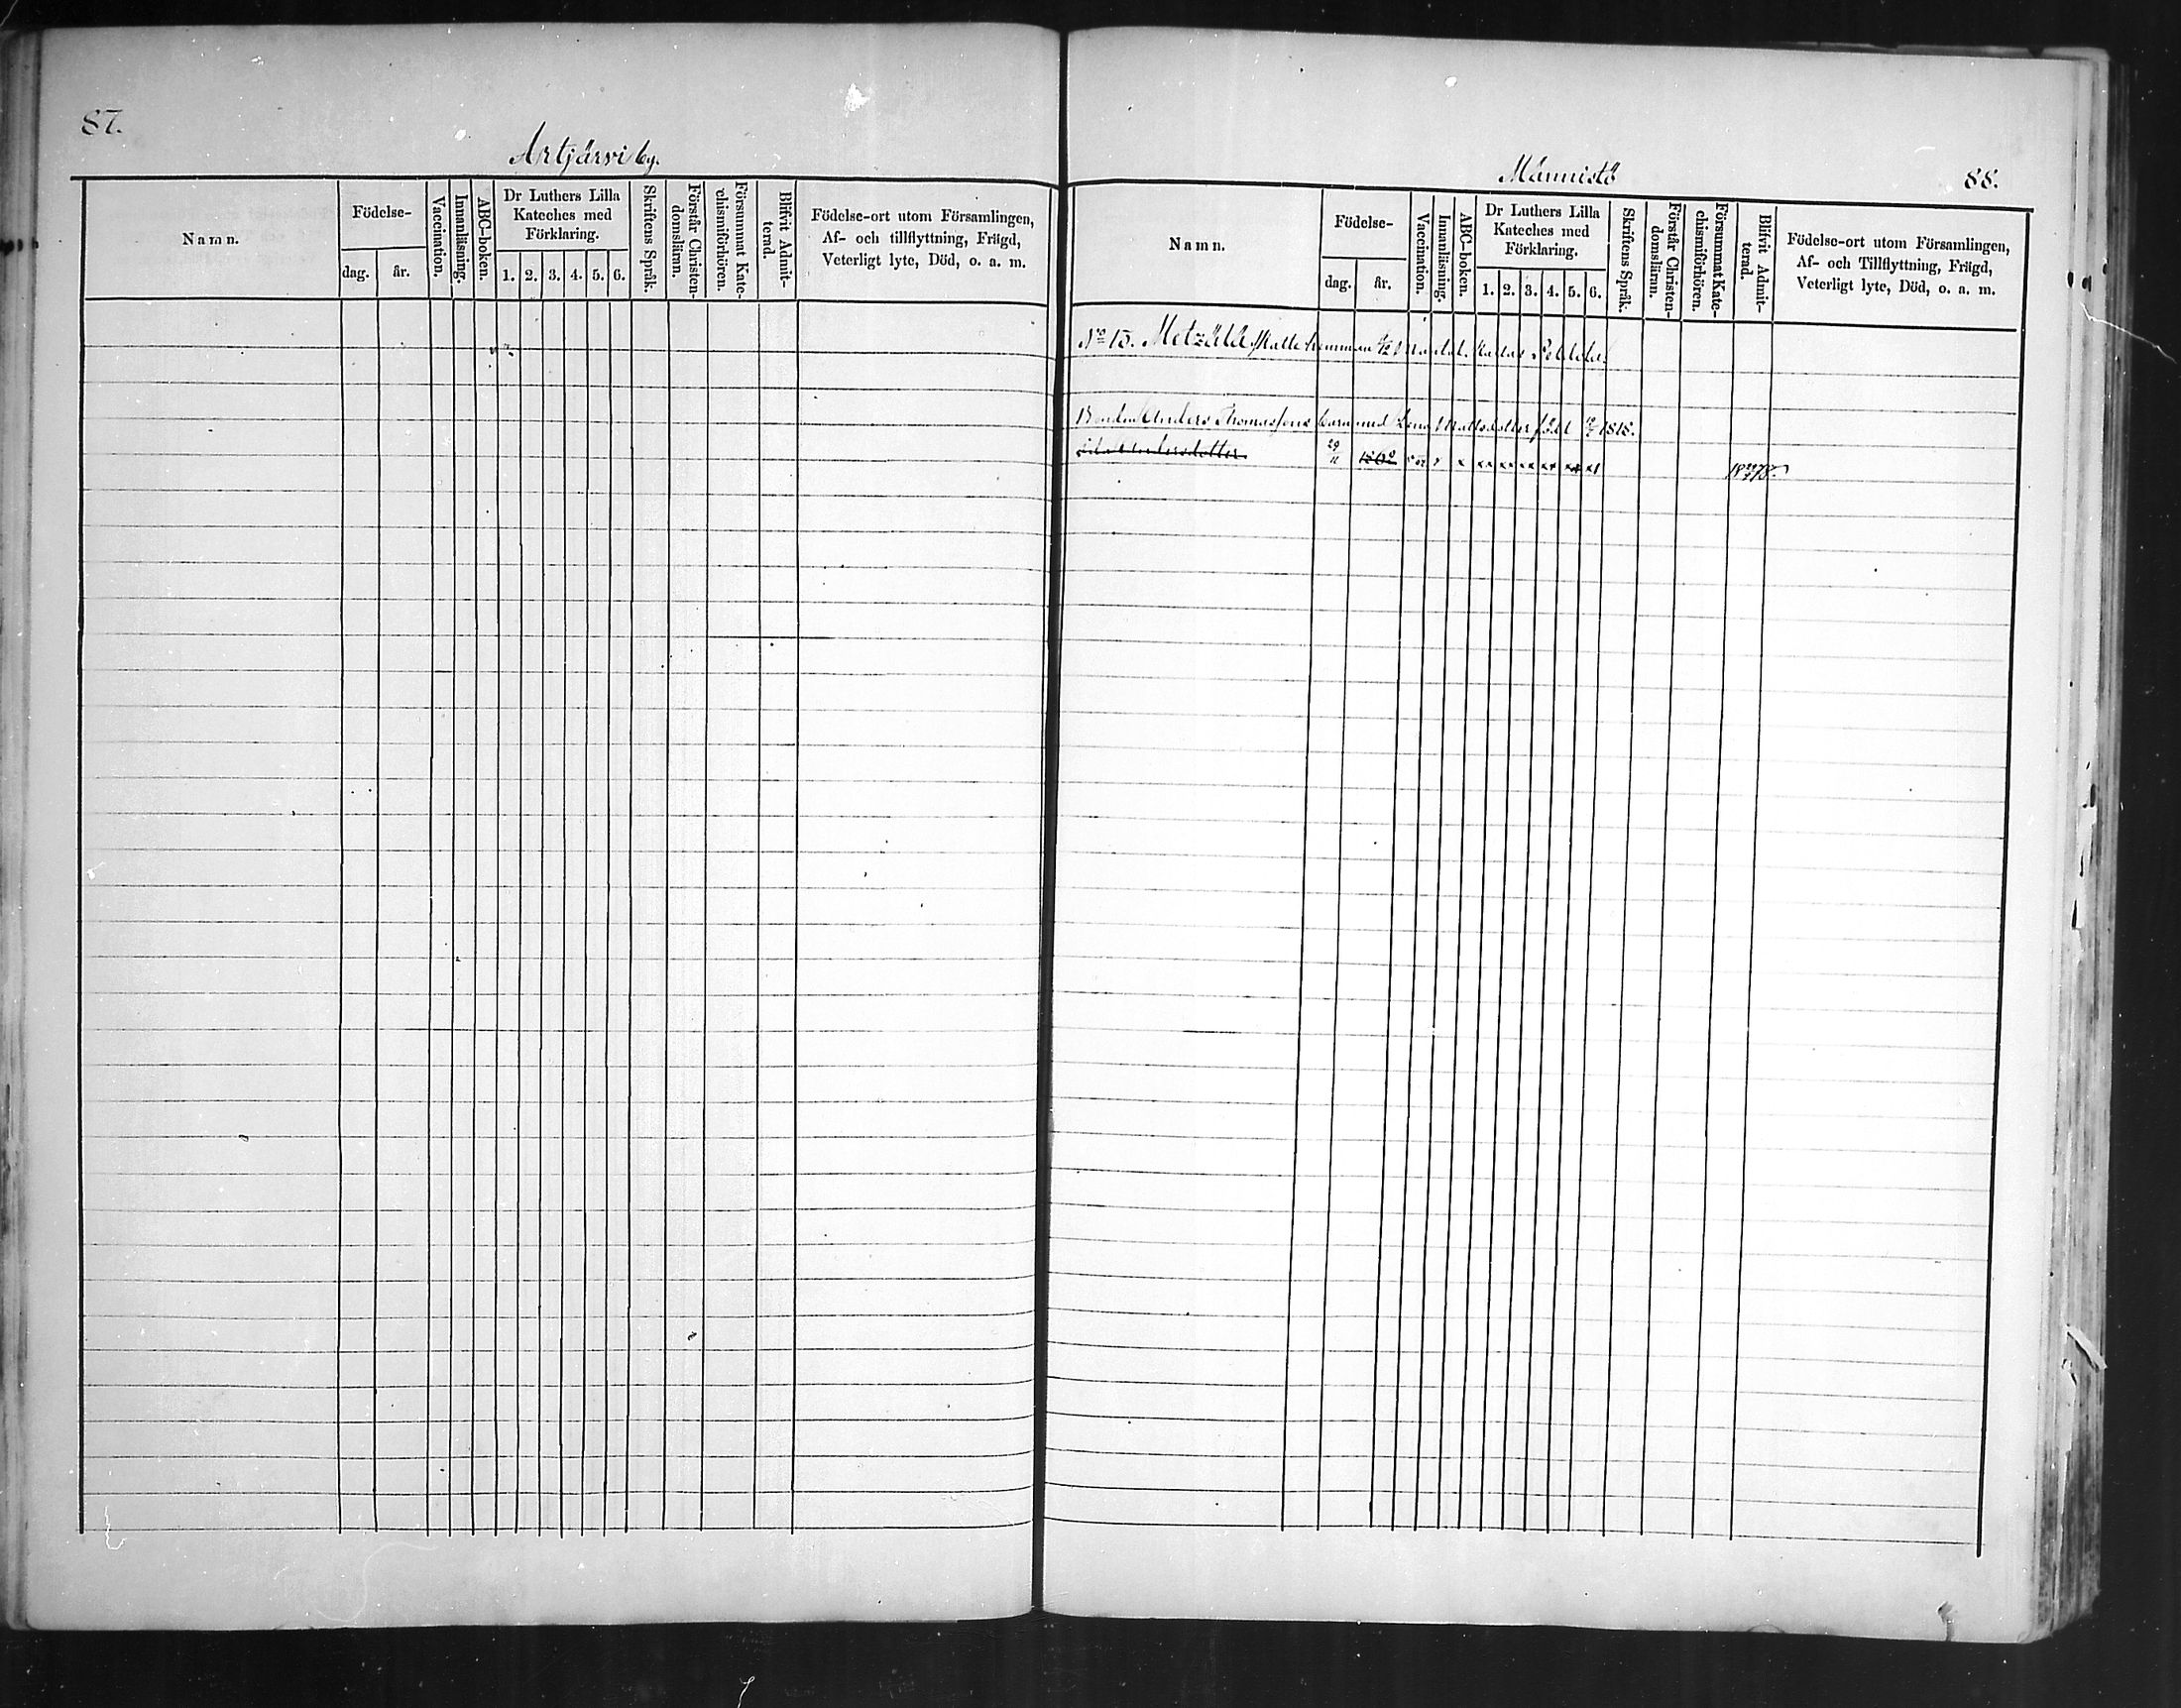 87.
Artjärvi by.
Namn.
Födelse-
dag. år.
Vaccination.
Innanläsning.
ABC-boken.
Dr Luthers Lilla
Kateches med
Förklaring.
1. 2. 3. 4. 5. 6.
Skriftens Språk.
Förstår Christen-
domsläran.
Försummat Kate-
chismiförhören.
Blifvit Admit-
terad.
Födelse-ort utom Församlingen,
Af- och tillflyttning, Frägd,
Veterligt lyte, Död, o. a. m.
Männistö
88.
Namn.
Födelse-
dag. år.
Vaccination.
Innanläsning.
ABC-boken.
Dr Luthers Lilla
Kateches med
Förklaring.
1. 2. 3. 4. 5. 6.
Skriftens Språk.
Förstår Christen-
domsläran.
Försummat Kate-
chismiförhören.
Blifvit Admit-
terad.
Födelse-ort utom Församlingen,
Af- och Tillflyttning, Frägd,
Veterligt lyte, Död, o. a. m.
No 15. Metzälä Skatte hemman Mantal. kallas
Bonden Anders Thomassons barn med Lena Mattsdotter född 1818.
Andersdotter 29/11